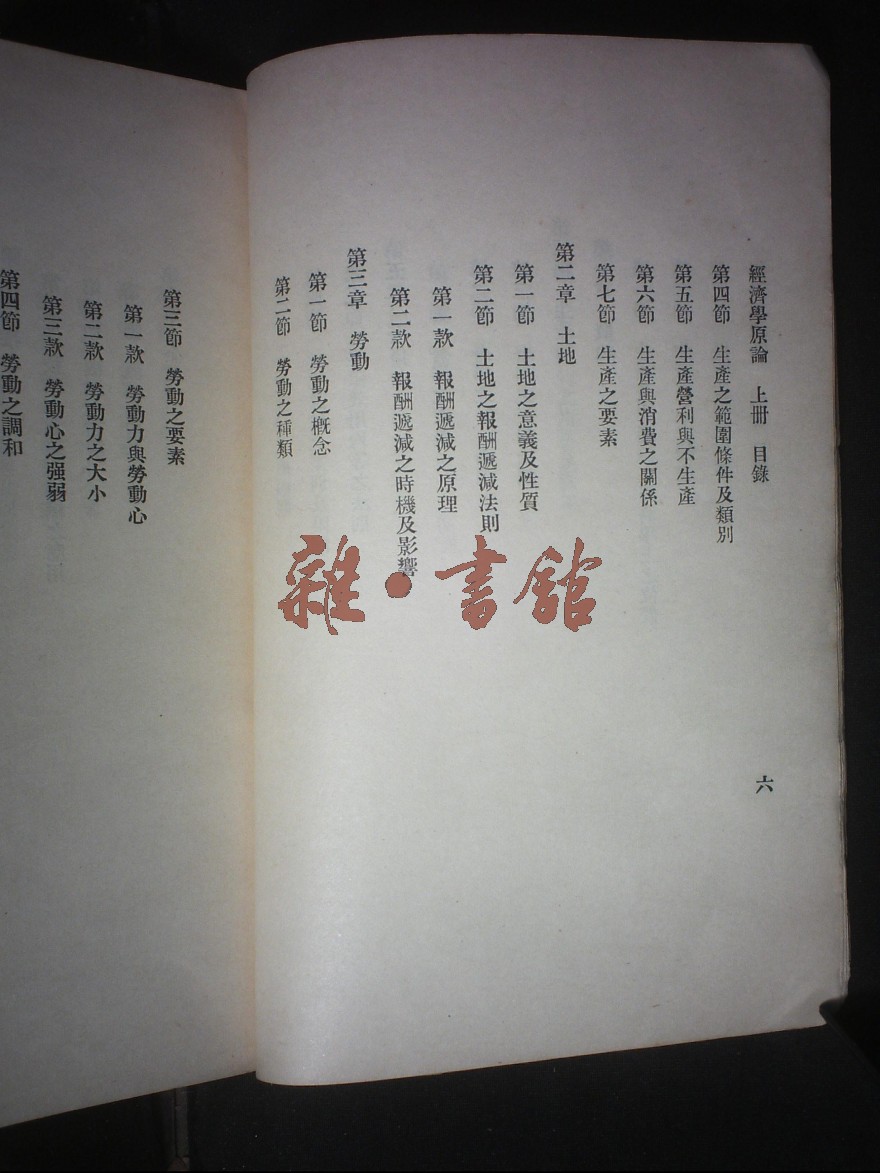 經濟學原論 上册 目錄
六
第四節 生產之範圍條件及類別
第五節 生產營利與不生產
第六節 生產與消費之關係
第七節 生產之要素
第二章 土地
第一節 土地之意義及性質
第二節 土地之報酬遞減法則
第一款 報酬遞減之原理
第二款 報酬遞減之時機及影響
第三章 勞動
第一節 勞動之概念
第二節 勞動之種類
第三節 勞動之要素
第一款 勞動力與勞動心
第二款 勞動力之大小
第三款 勞動心之强弱
第四節 勞動之調和
雜·書館